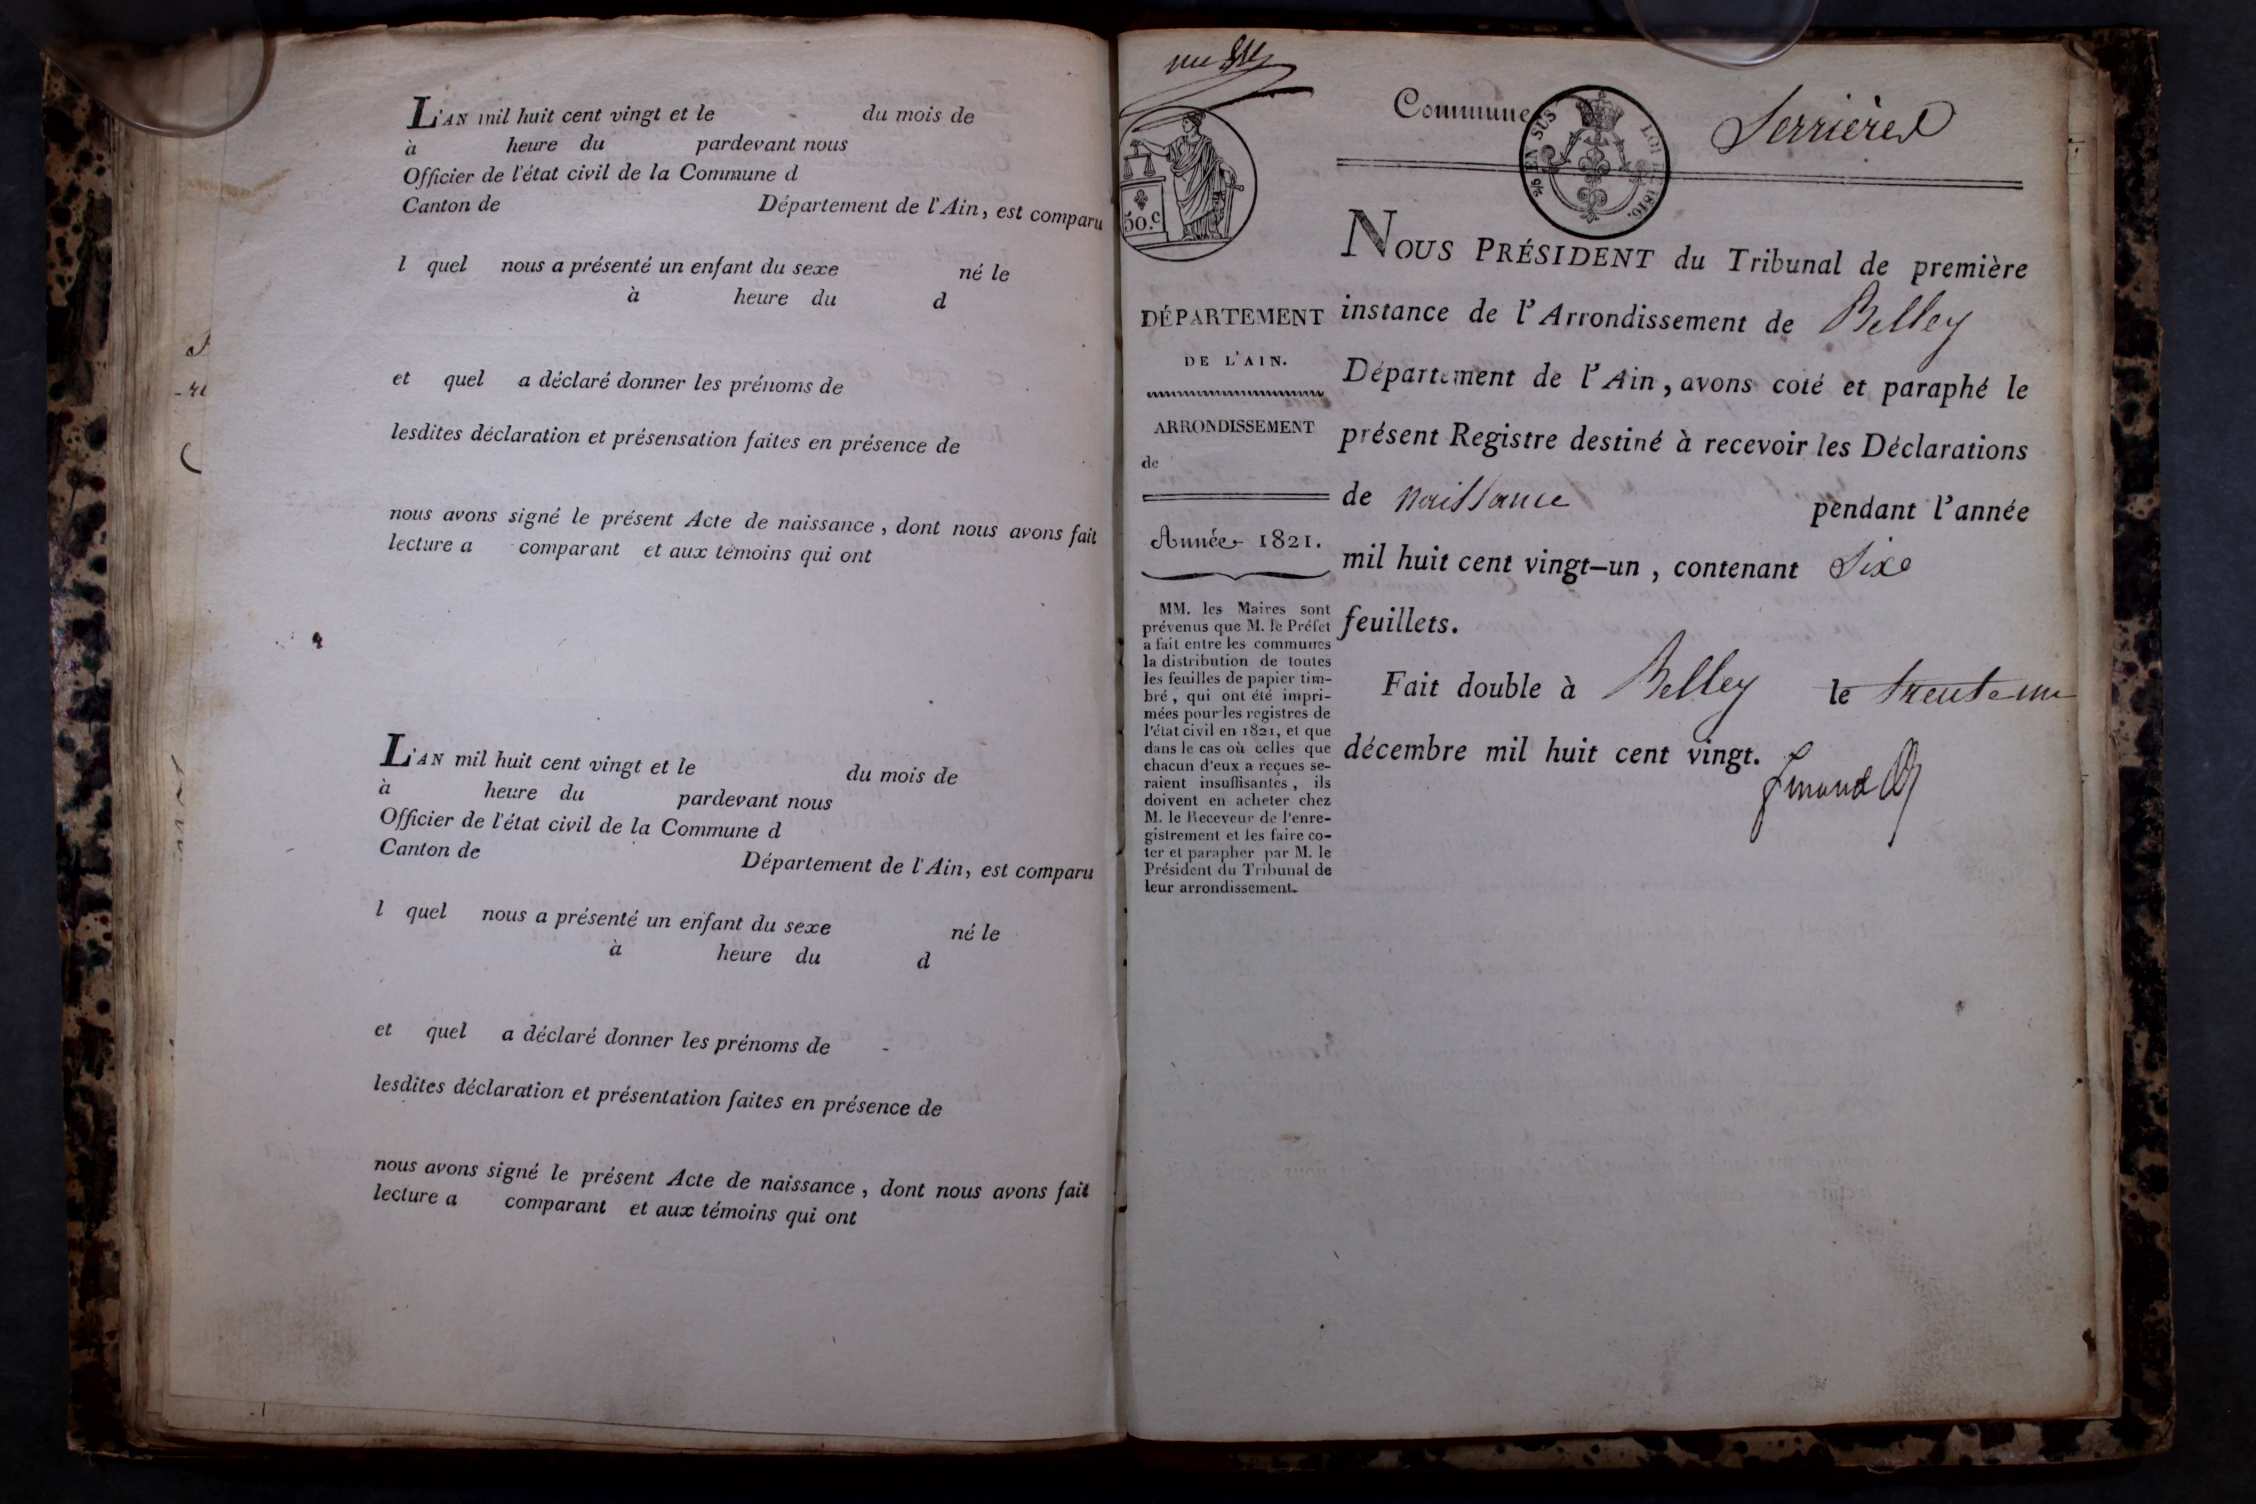 L'AN mil huit cent vingt et le du mois de
à heure du pardevant nous
Officier de l'état civil de la Commune d
Canton de Département de l'Ain, est comparu
l quel nous a présenté un enfant du sexe né le
à heure du d
et quel a déclaré donner les prénoms de
lesdites déclaration et présensation faites en présence de
nous avons signé le présent Acte de naissance, dont nous avons fait
lecture a comparant et aux témoins qui ont
L'AN mil huit cent vingt et le du mois de
à heure du pardevant nous
Officier de l'état civil de la Commune d
Canton de Département de l'Ain, est comparu
l quel nous a présenté un enfant du sexe né le
à heure du d
et quel a déclaré donner les prénoms de
lesdites déclaration et présentation faites en présence de
nous avons signé le présent Acte de naissance, dont nous avons fait
lecture a comparant et aux témoins qui ont
50.c
DÉPARTEMENT
DE L'AIN.
ARRONDISSEMENT
de
Année 1821.
MM. les Maires sont
prévenus que M. le Préfet
a fait entre les communes
la distribution de toutes
les feuilles de papier tim-
bré, qui ont été impri-
mées pour les registres de
l'état civil en 1821, et que
dans le cas où celles que
chacun d'eux a reçues se-
raient insuffisantes, ils
doivent en acheter chez
M. le Receveur de l'enre-
gistrement et les faire co-
ter et parapher par M. le
Président du Tribunal de
leur arrondissement.
Commune Serrières
EN SUS LOI DE 1816.
NOUS PRÉSIDENT du Tribunal de première
instance de l'Arrondissement de Belley
Département de l'Ain, avons coté et paraphé le
présent Registre destiné à recevoir les Déclarations
de naissance pendant l'année
mil huit cent vingt-un, contenant Six
feuillets.
Fait double à Belley le trente un
décembre mil huit cent vingt.